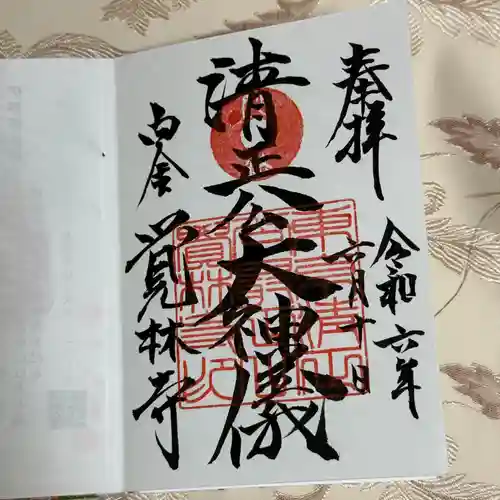 奉拝
令和六年
六月十日
清正公大神儀
白金
覚林寺